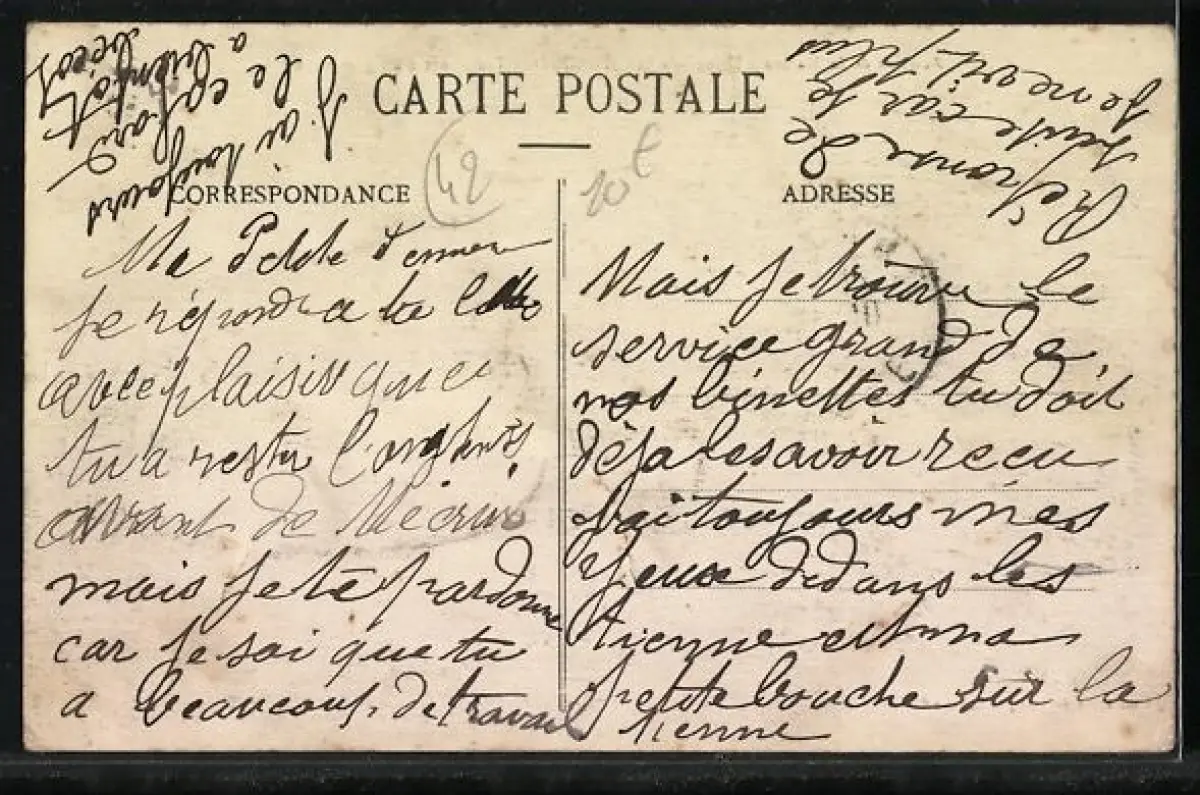 CARTE POSTALE
CORRESPONDANCE
ADRESSE
42
10€
Ma Petite
je répond a ta
avec plaisir que
tu a restu
avant de
mais je te pardonne
car je sai que tu
a beaucoup de travail
Mais je trouve le
service grand de
nos binettes tu doit
déja le savoir recu
J'ai toujours mes
yeux dedans les
tienne et ma
petite bouche sur la
tienne
Réponse de
suite car je
plus
J'ai toujours
le
a bientot
bécot